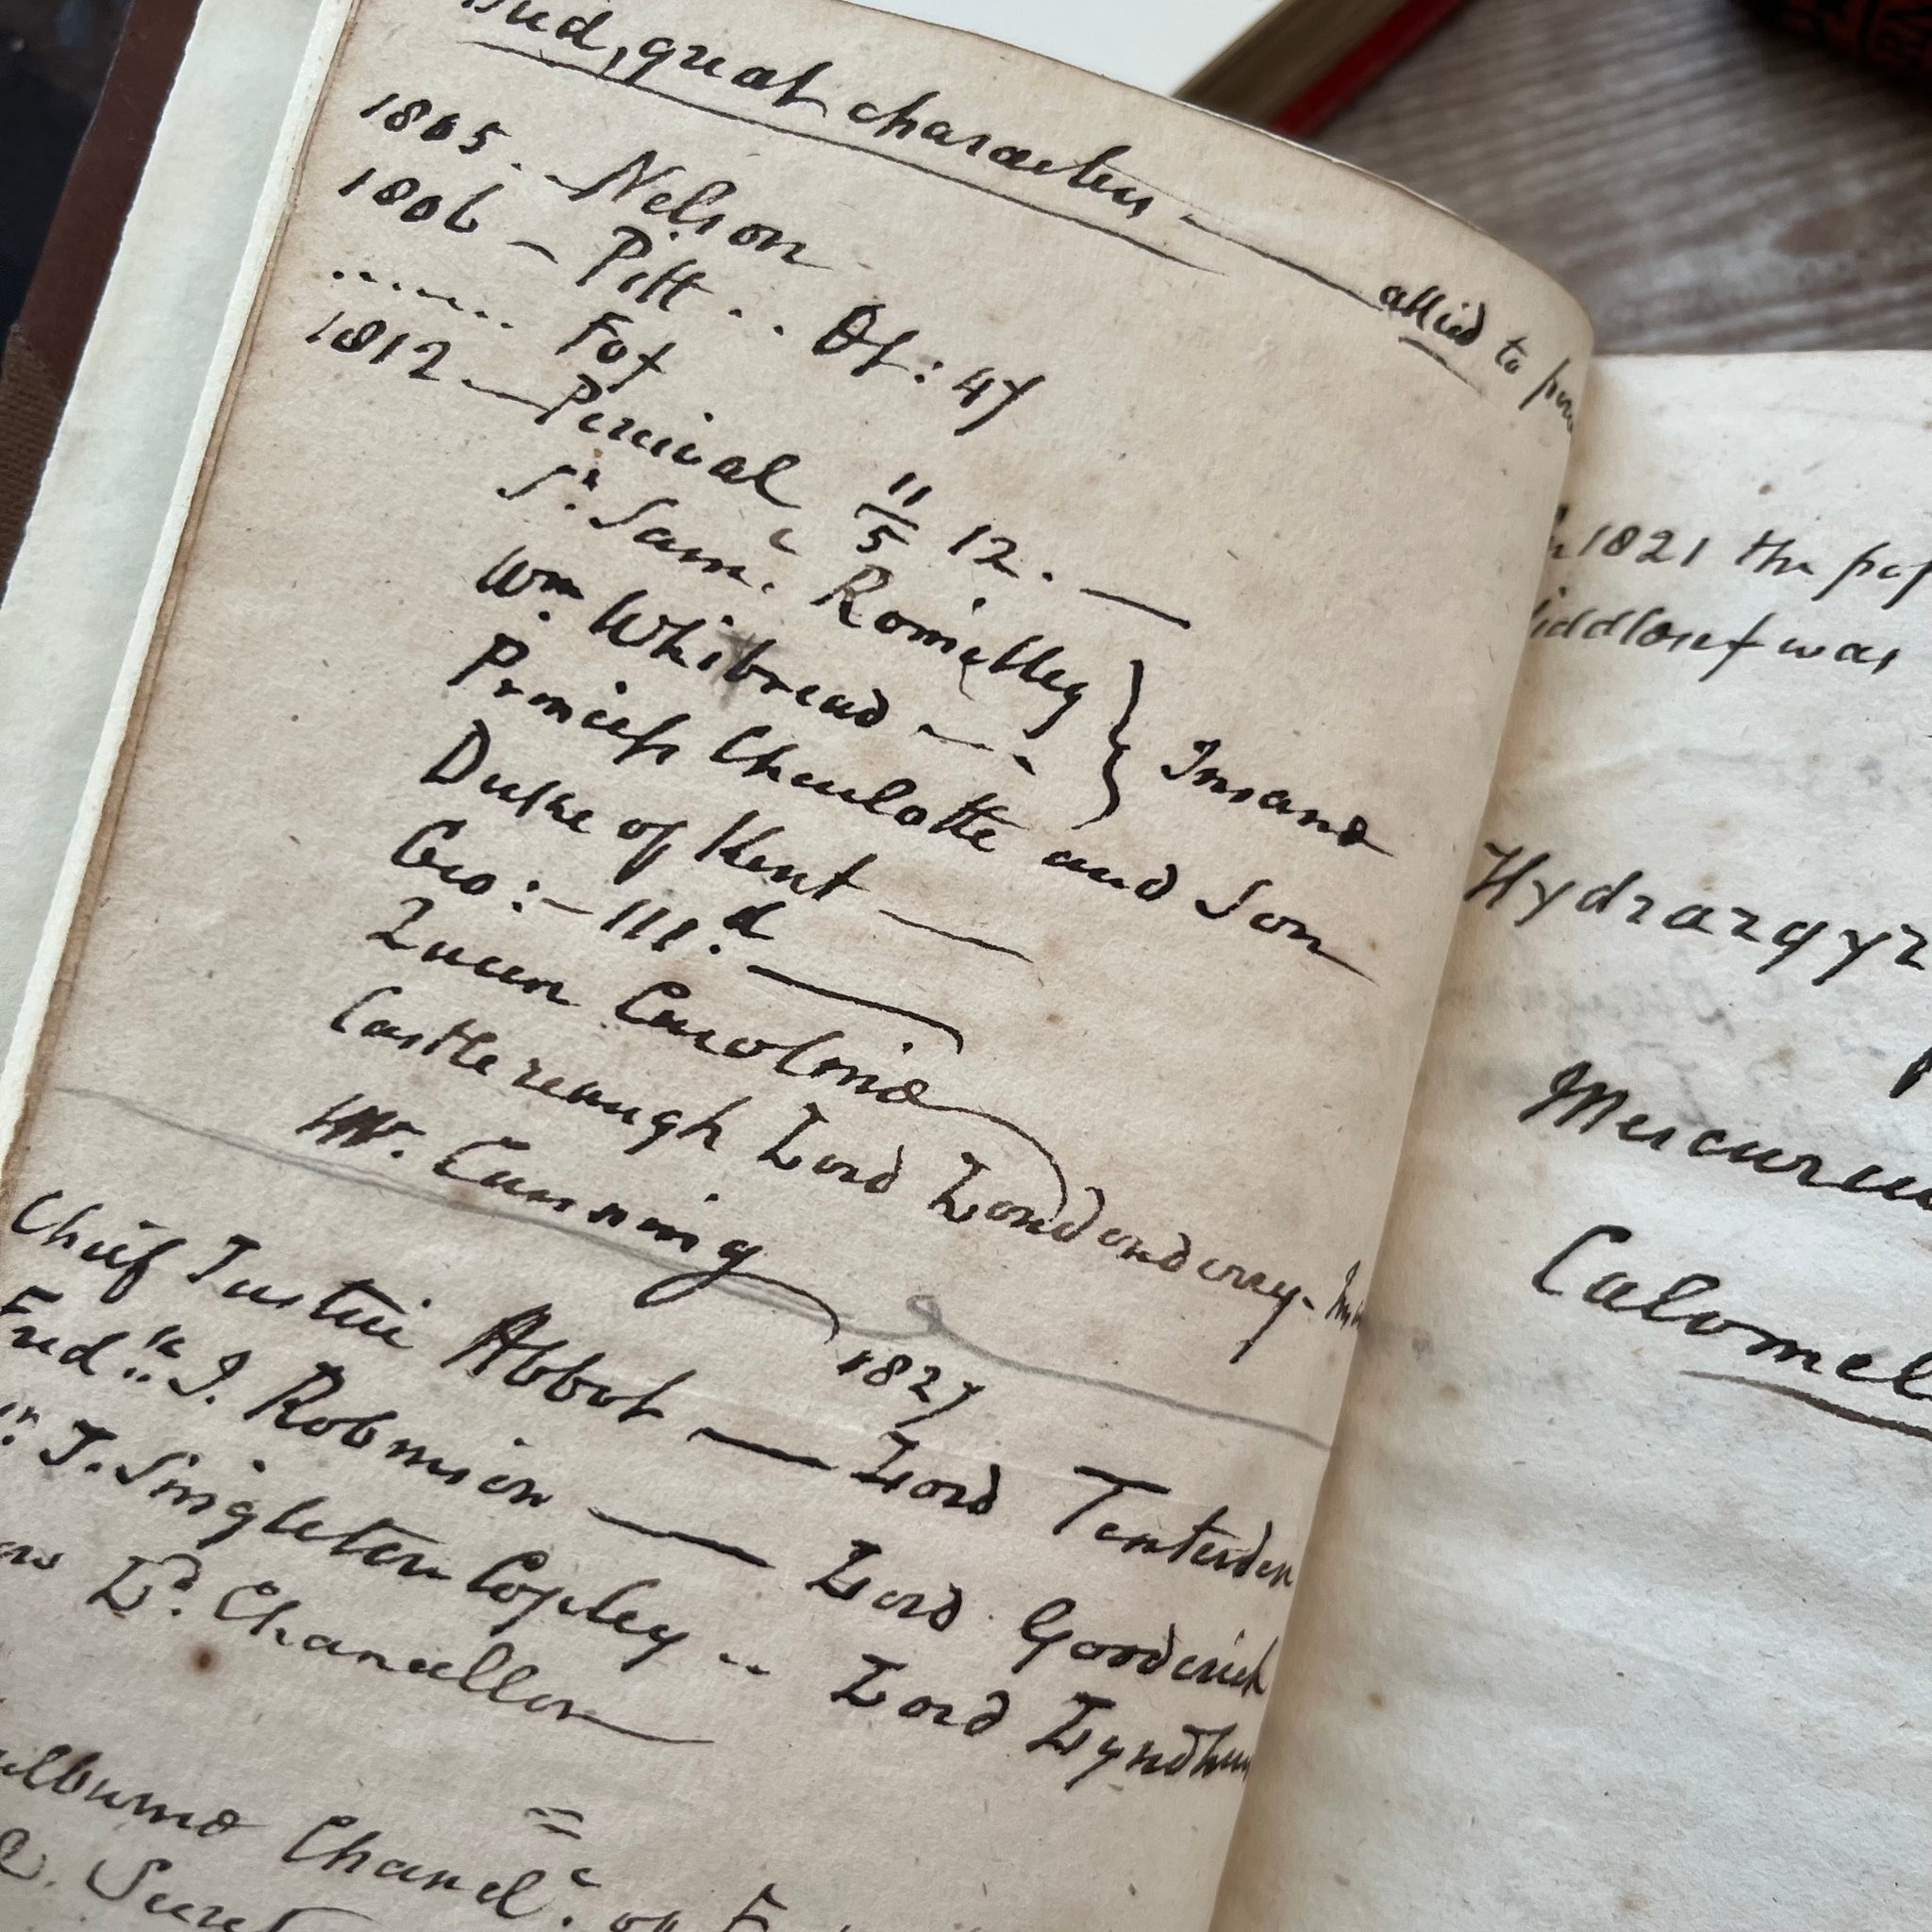 Died, great characters - allied to
1805. - Nelson
1806 - Pitt .. Æt: 47
...... Fox
1812 - Percival 11/5 12. —
Sr. Saml. Romilley } Insane
Wm. Whitbread - - }
Princess Charlotte and Son
Duke of Kent —
Geo: - III.d —
Queen Caroline
Castlereaugh Lord Londonderry -
Mr. Canning 1827
Chief Justice Abbot — Lord Tenterden
Fred.k J. Robinson — Lord Gooderich
J. Singleton Copley .. Lord Lyndhur
Ld. Chancellor
=
Chancel.r
1821 the pop
was
Hydrargyr
Mercuriu
Calomel